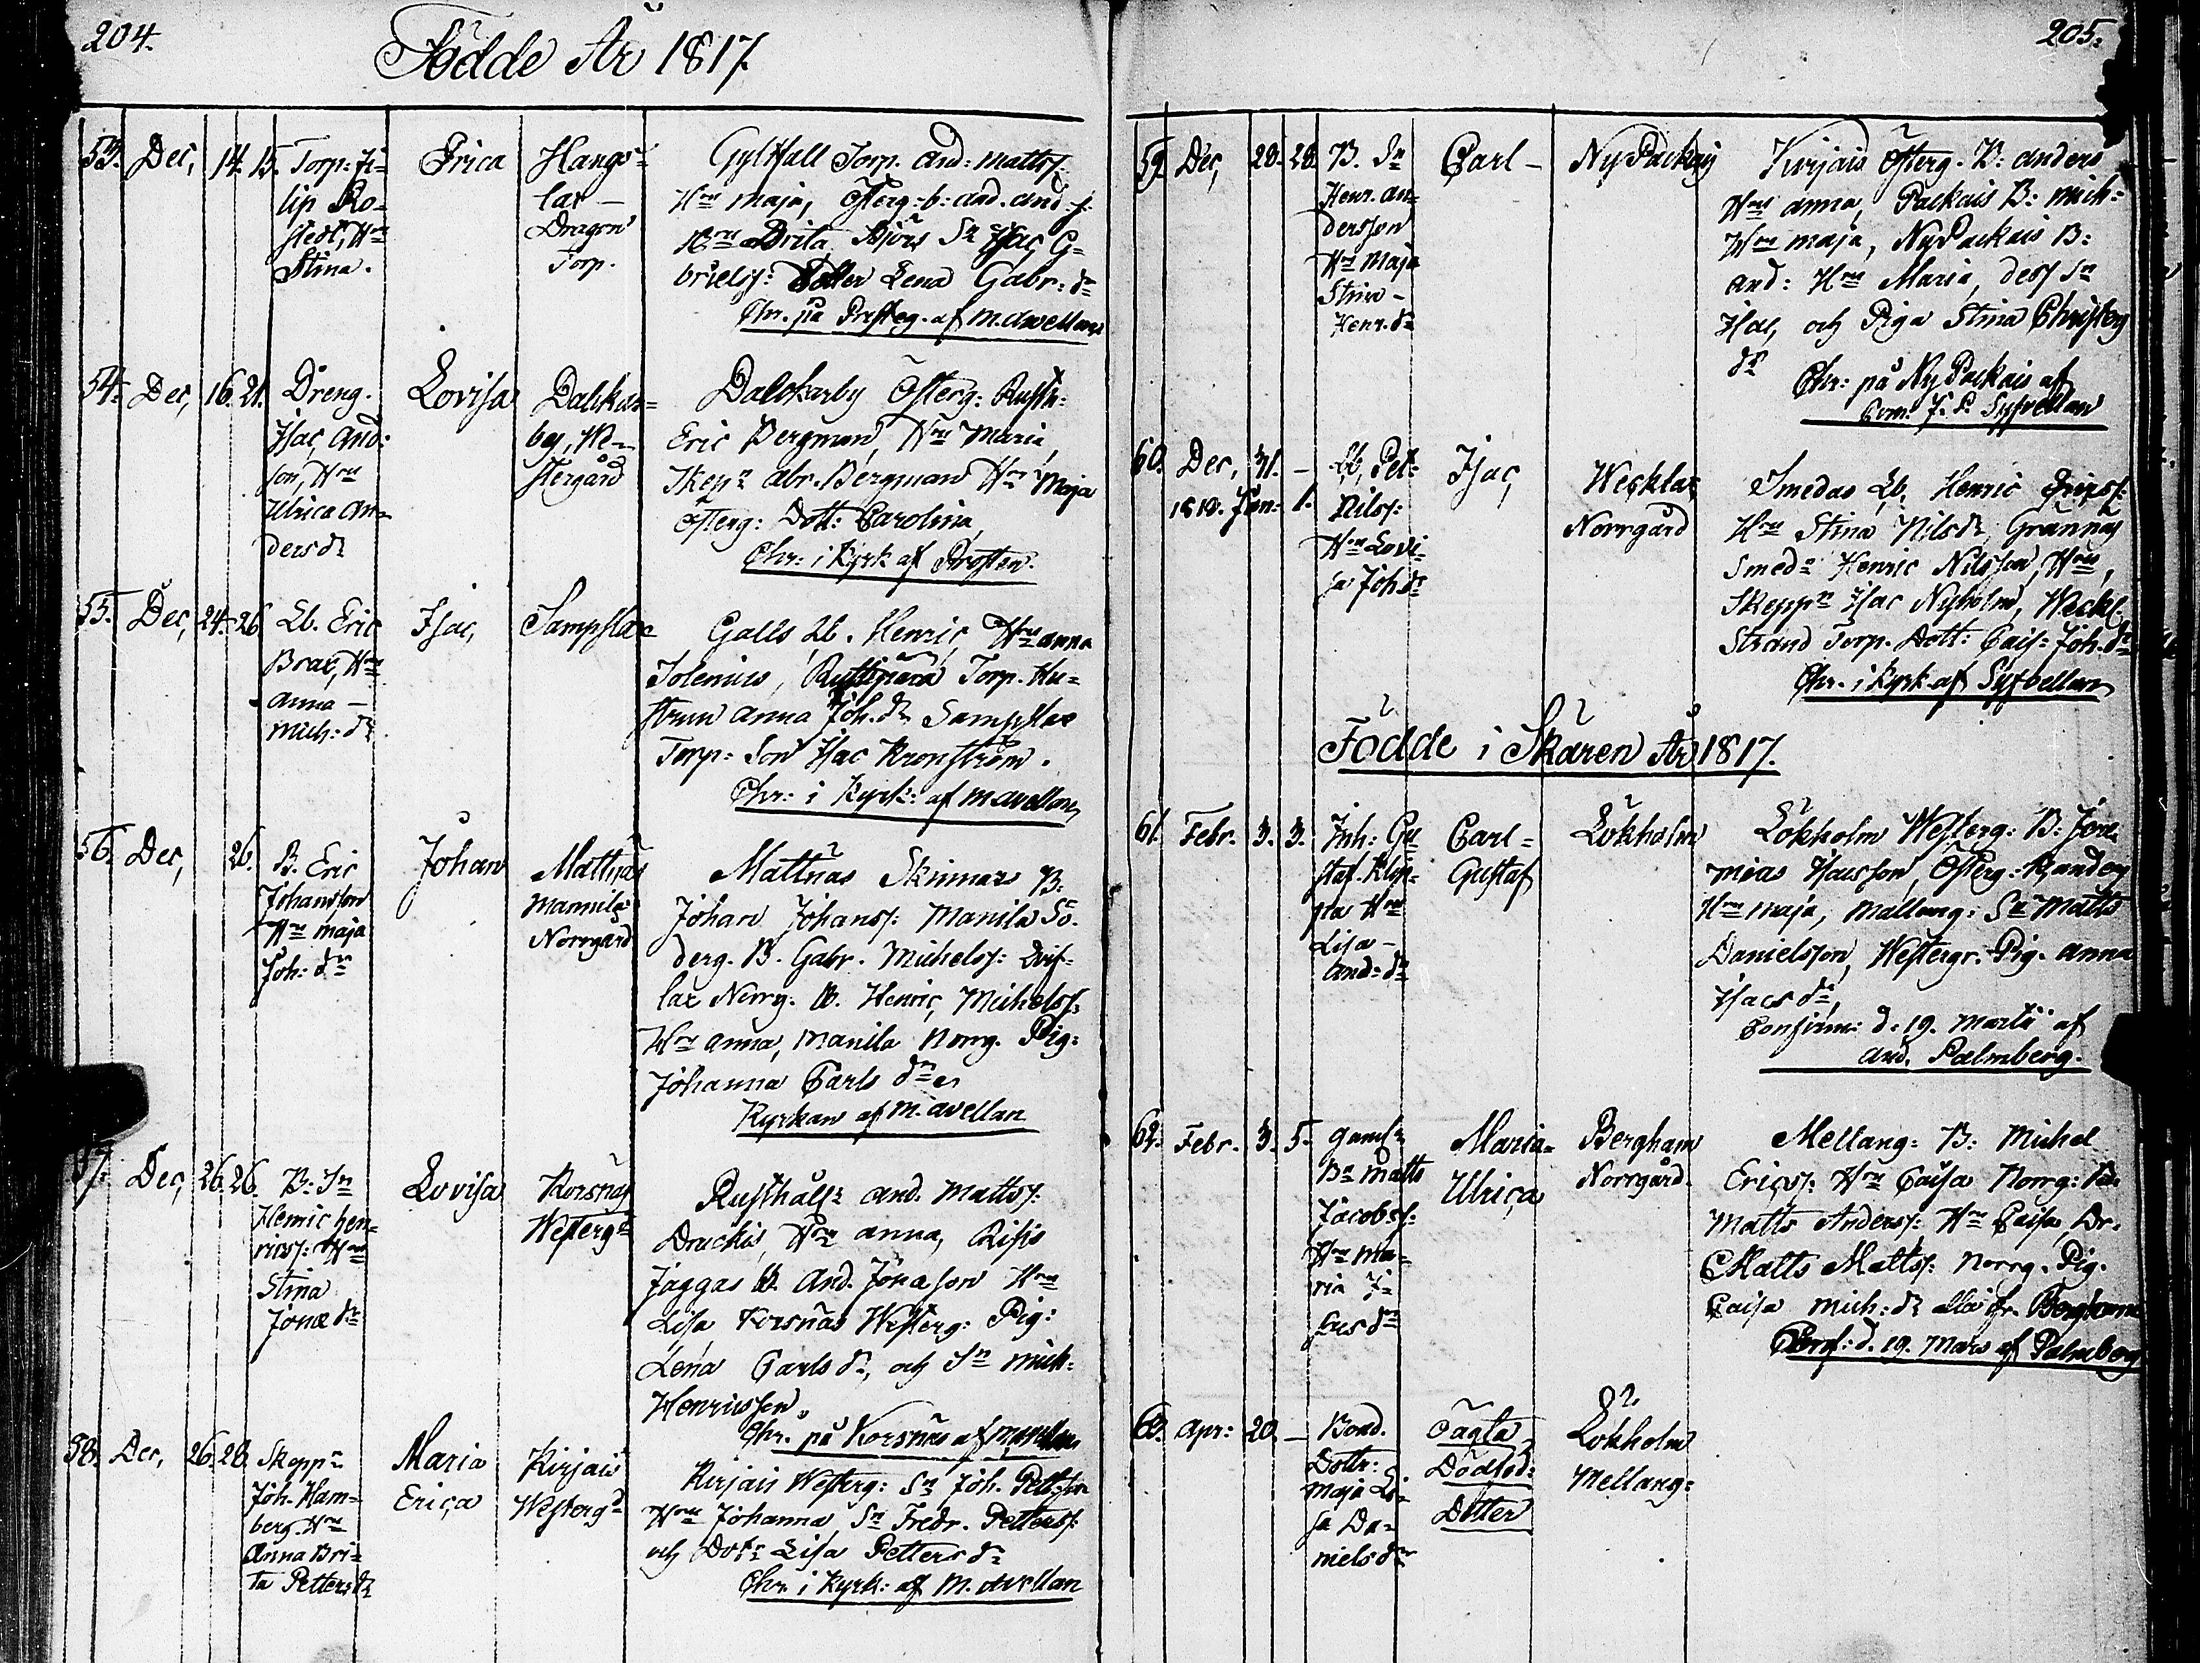 204.
Födde År 1817.
53. Dec, 14. 15. Torp: Fi=
lip Ro=
stedt, H:ru
Stina.
Erica
Hangs=
lax -
Dragon
Torp.
Gylthall Torp. And: Mattss:
H:ru Maja, Österg: b: And. And:s:
H:ru Brita, Sn Isac G=
brielss: Lena Gabr: dr
Chr. på Presteg. af M. Avellan
54. Dec, 16. 21. Dreng.
Isac And:
son, H:ru
Ulrica An=
ders dr
Lovisa
Dalskar=
by, We=
stergård
Dalskarby Österg: Rusth:
Eric Bergman, H:ru Maria,
Skepr Abr. Bergman H:ru Maja
Österg: Dott: Carolina,
Chr: i Kyrk af Prosten.
55. Dec, 24. 26. Lb. Eric
Brax, H:ru
Anna -
Mich: dr
Isac,
Sampslax
Galts Lb. Henric, H:ru Anna
Torp. Hu=
strun Anna Joh. dr Sampslax
Torp: Son Isac Kronström.
Chr: i Kyrk: af M Avellan
56. Dec, 26. B. Eric
Johansson
H:ru Maja
Joh: dr
Johan
Mattnäs
Mannila
Norrgård
Mattnäs Skinnars B:
Johan Johanss: Manila Sö=
derg. B. Gabr. Michelss:
lax Norrg. B. Henric, Michelss:
H:ru Anna, Manila Norrg. Pig:
Johanna Carls dr
Kyrkan af M. Avellan
57. Dec, 26. 26. B: Sn
Henric Hen=
ricss: H:ru
Stina
Jonæ dr
Lovisa
Korsnäs
Westergd
Rusthållr And. Mattss:
H:ru Anna,
Jaggas B. And. Jonæson H:ru
Lisa Korsnäs Westerg: Pig:
Lena Carls dr, och Sn Mich:
Henricsson.
Chr. på Korsnäs af
58. Dec, 26. 28. Skeppr
Joh. Ham=
berg. H:ru
Anna Bri=
ta Petters dr
Maria
Erica
Kirjais
Westergd
Kirjais Westerg: Sn Joh. Petterson
H:ru Johanna Sn Fredr. Petterss:
och Dotr Lisa Petters dr
Chr. i Kyrk: af M. Avellan
205.
59. Dec, 28. 28. B. Sn
Henr. An=
dersson
H:ru Maja
Stina -
Henr. dr
Carl -
Ny Packais
Kirjais Österg. B: Anders
H:ru Anna, Packais B: Mich:
H:ru Maja, Ny Packais B:
And: H:ru Maria, dess Sn
Isac, och Piga Stina
dr
Chr: på Ny Packais af
60. Dec, 31. -
1818. Jan. 1.
Lb, Pet:
Nilss:
H:ru Lovi=
sa Joh. dr
Isac,
Wecklax
Norrgård
Smedas Lb, Henric Ericss:
H:ru Stina Nilsdr, Grännäs
Smedn Henric Nilsson, H:ru,
Skeppr Isac Nyholm, Weckl.
Strand Torp. Dott: Cais: Joh. dr
Chr. i Kyrk af
Födde i Skären År 1817.
61. Febr. 3. 3. Inh: Gu
staf
H:ru
Lisa -
And: dr
Carl =
Gustaf
Lökholm
Lökholm Westerg: B: Jere
mias Isacsson, Österg:
H:ru Maja, Mellang: Sn Matts
Danielsson, Westergr. Pig. Anna
Isacs dr,
Confirm: d: 19. Martii af
And. Palmberg.
62. Febr. 3. 5. Gaml
Bn Matts
Jacobss:
H:ru Ma=
ria
dr
Maria=
Ulrica
Bergham
Norrgård.
Mellang: B: Michel
Ericss: H:ru Caisa Norrg:
Matts Anderss: H:ru Caisa, Dr.
Matts Mattss: Norrg. Pig.
Caisa Mich: dr alla fr. Bergham
Conf: d. 19. Mars af Palmberg
63. Apr: 20. - Bond.
Dottr:
Maja Li=
sa Da=
niels dr
Oägta
Dödföd:
Dotter
Lökholm
Mellang: